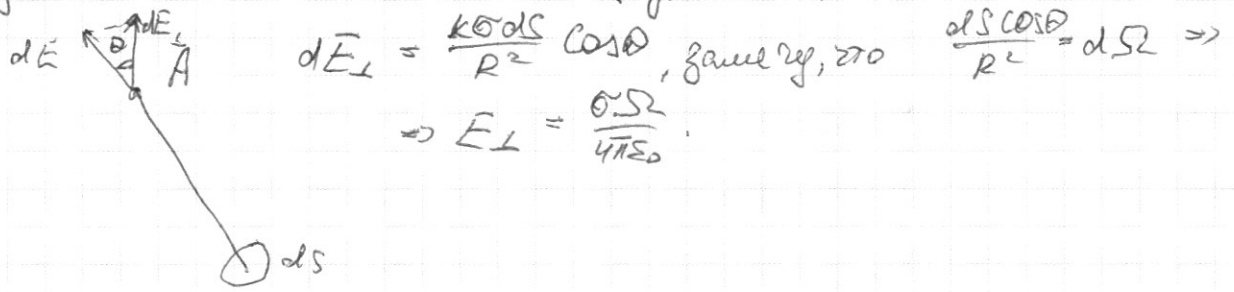 dE θ dE⊥ A dE⊥ = kσdS/R² cosθ, замечу, что dS cosθ/R² = dΩ =>
=> E⊥ = σΩ/4πε₀.
dS